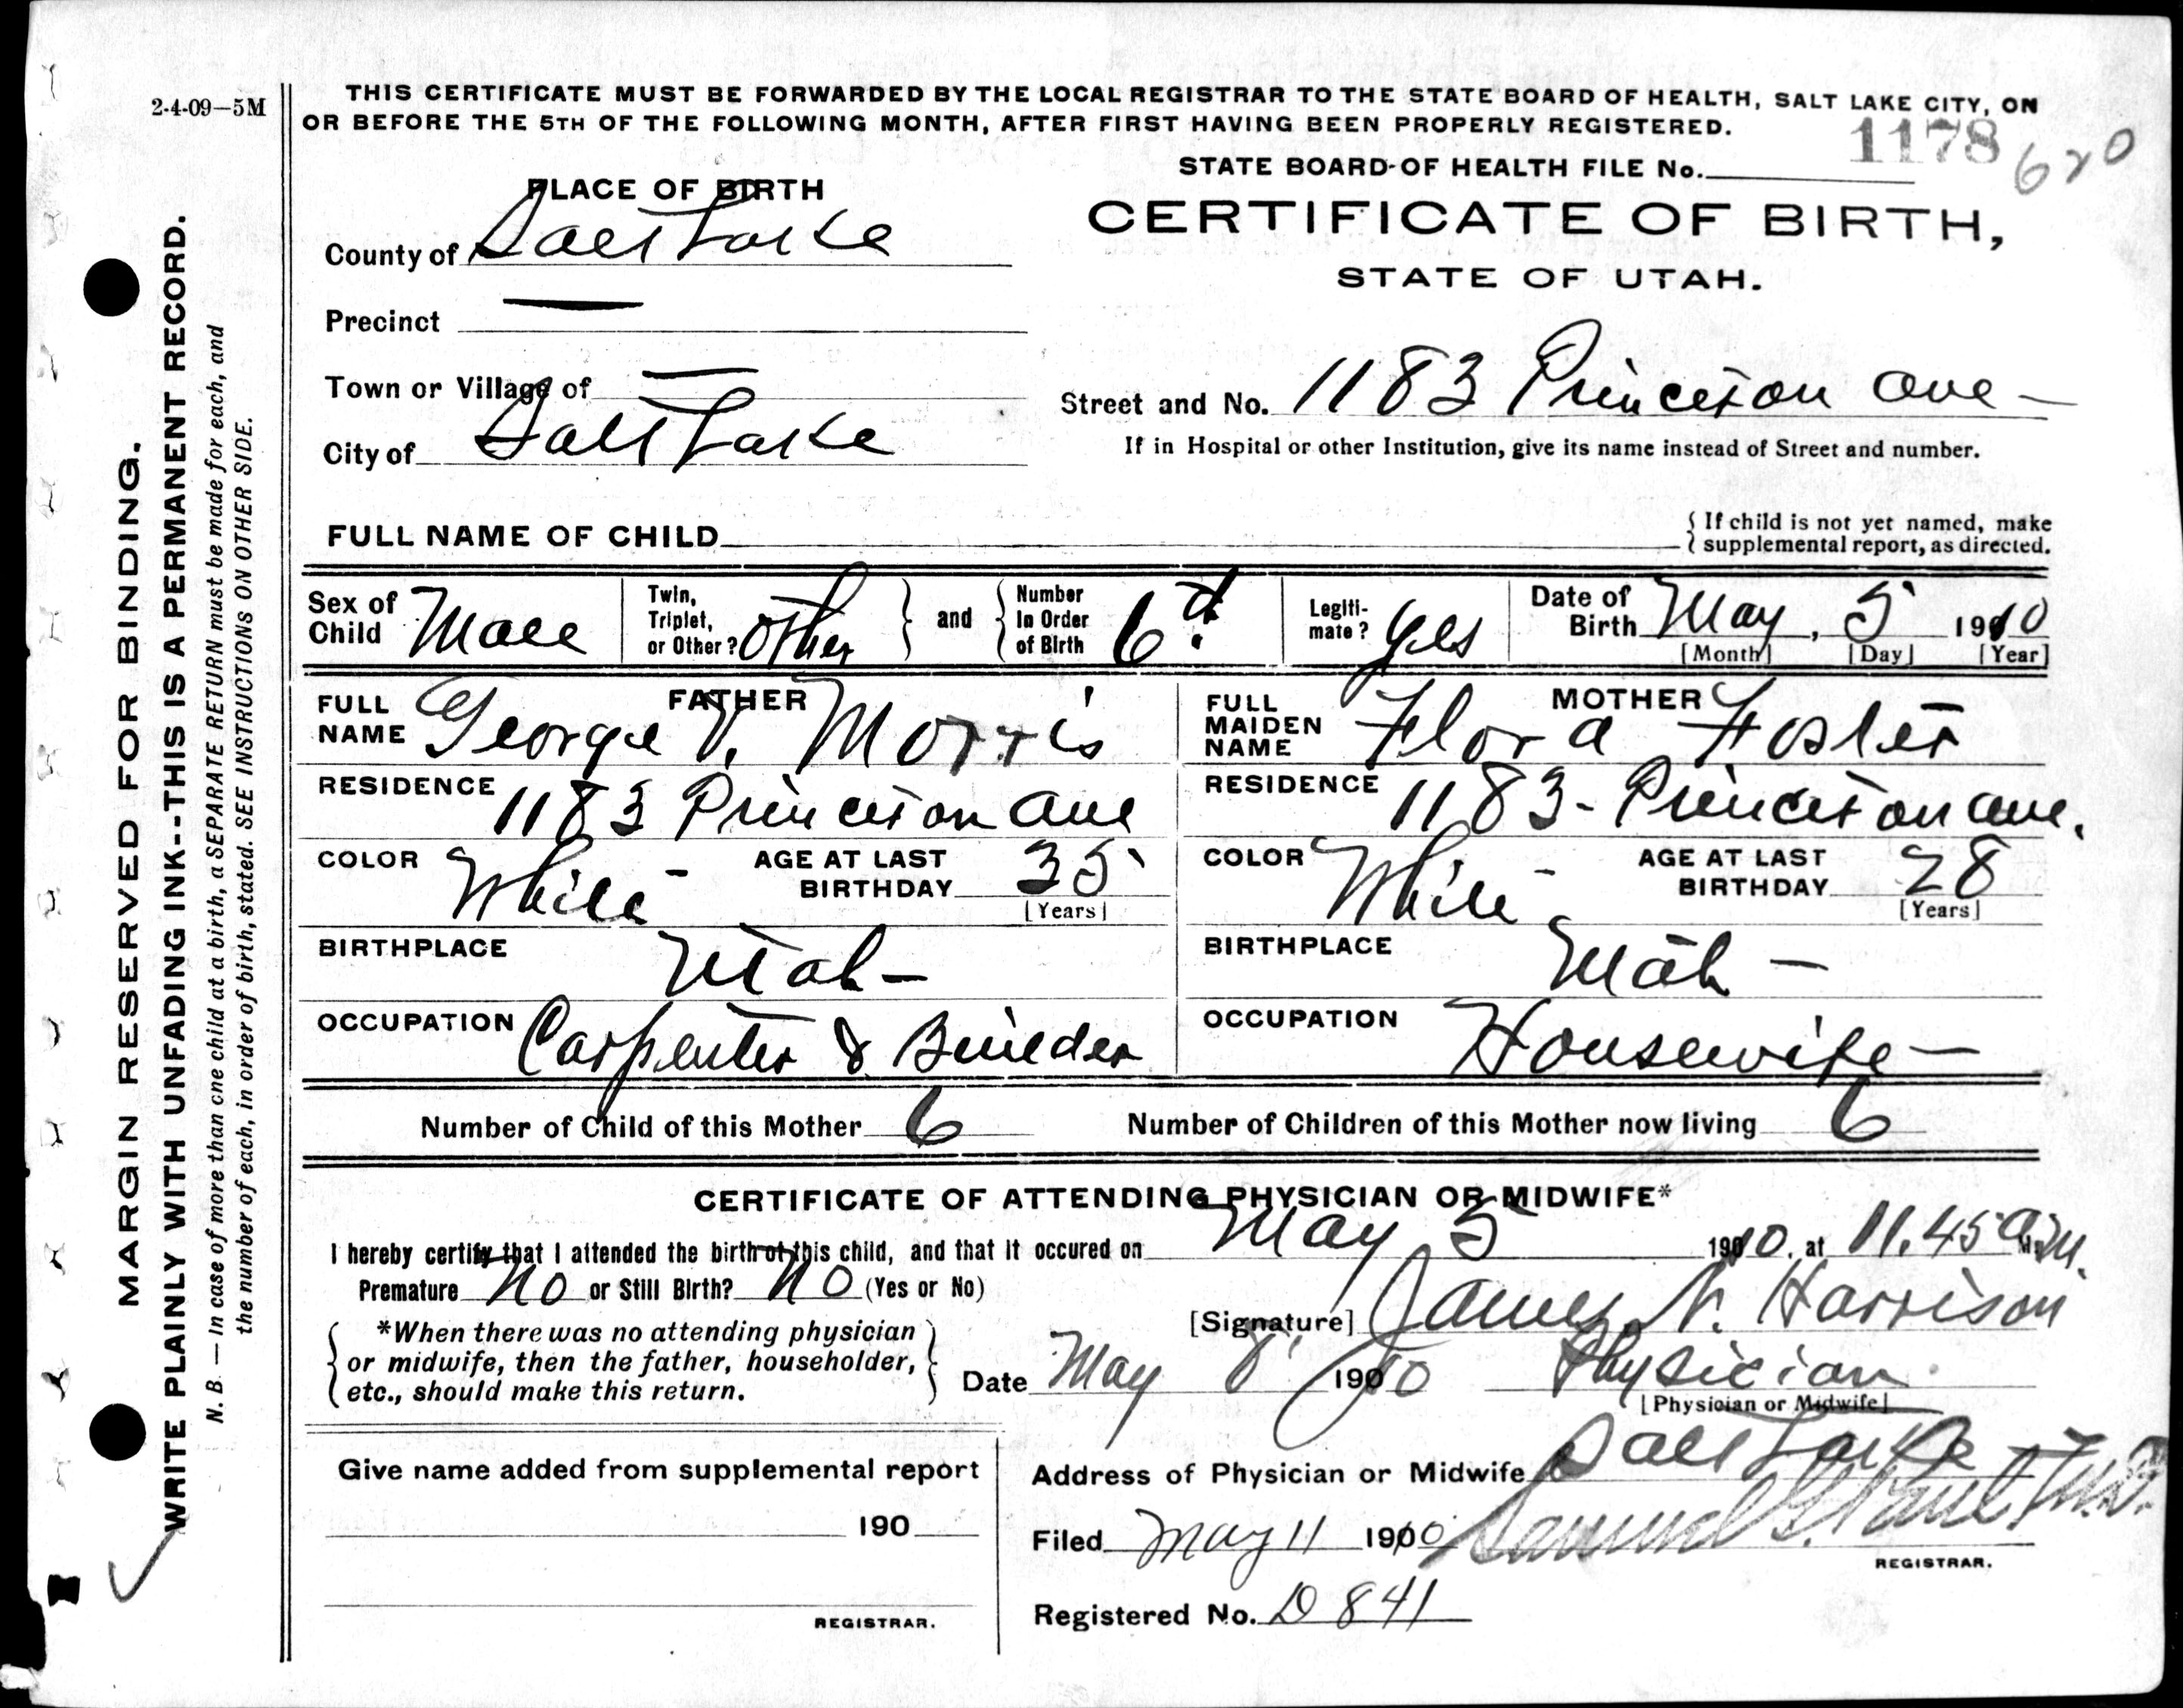 2-4-09—5M
THIS CERTIFICATE MUST BE FORWARDED BY THE LOCAL REGISTRAR TO THE STATE BOARD OF HEALTH, SALT LAKE CITY, ON
OR BEFORE THE 5TH OF THE FOLLOWING MONTH, AFTER FIRST HAVING BEEN PROPERLY REGISTERED.
1178 620
STATE BOARD OF HEALTH FILE No.
PLACE OF BIRTH
CERTIFICATE OF BIRTH,
STATE OF UTAH.
County of Salt Lake
Precinct —
Town or Village of —
Street and No. 1183 Princeton Ave —
City of Salt Lake
If in Hospital or other Institution, give its name instead of Street and number.
FULL NAME OF CHILD
{ If child is not yet named, make
supplemental report, as directed.
Sex of Child Male
Twin, Triplet, or Other? Other } and { Number In Order of Birth 6th
Legiti-mate? Yes
Date of Birth May, 5 1910
[Month] [Day] [Year]
FATHER
FULL NAME George V. Morris
RESIDENCE 1183 Princeton Ave
COLOR White AGE AT LAST BIRTHDAY 35
[Years]
BIRTHPLACE Utah —
OCCUPATION Carpenter & Builder
MOTHER
FULL MAIDEN NAME Flora Foster
RESIDENCE 1183 - Princeton Ave.
COLOR White AGE AT LAST BIRTHDAY 28
[Years]
BIRTHPLACE Utah —
OCCUPATION Housewife —
Number of Child of this Mother 6 Number of Children of this Mother now living 6
CERTIFICATE OF ATTENDING PHYSICIAN OR MIDWIFE*
I hereby certify that I attended the birth of this child, and that it occured on May 5 1910, at 11.45 a.m. M.
Premature No or Still Birth? No (Yes or No)
[Signature] James N. Harrison
{ *When there was no attending physician
or midwife, then the father, householder,
etc., should make this return. }
Date May 8 1910 Physician
[Physician or Midwife]
Address of Physician or Midwife Salt Lake
Filed May 11 1910 Samuel G. Paul M.D.
REGISTRAR.
Registered No. D 841
Give name added from supplemental report
190
REGISTRAR.
MARGIN RESERVED FOR BINDING.
WRITE PLAINLY WITH UNFADING INK--THIS IS A PERMANENT RECORD.
N. B. — In case of more than one child at a birth, a SEPARATE RETURN must be made for each, and
the number of each, in order of birth, stated. SEE INSTRUCTIONS ON OTHER SIDE.